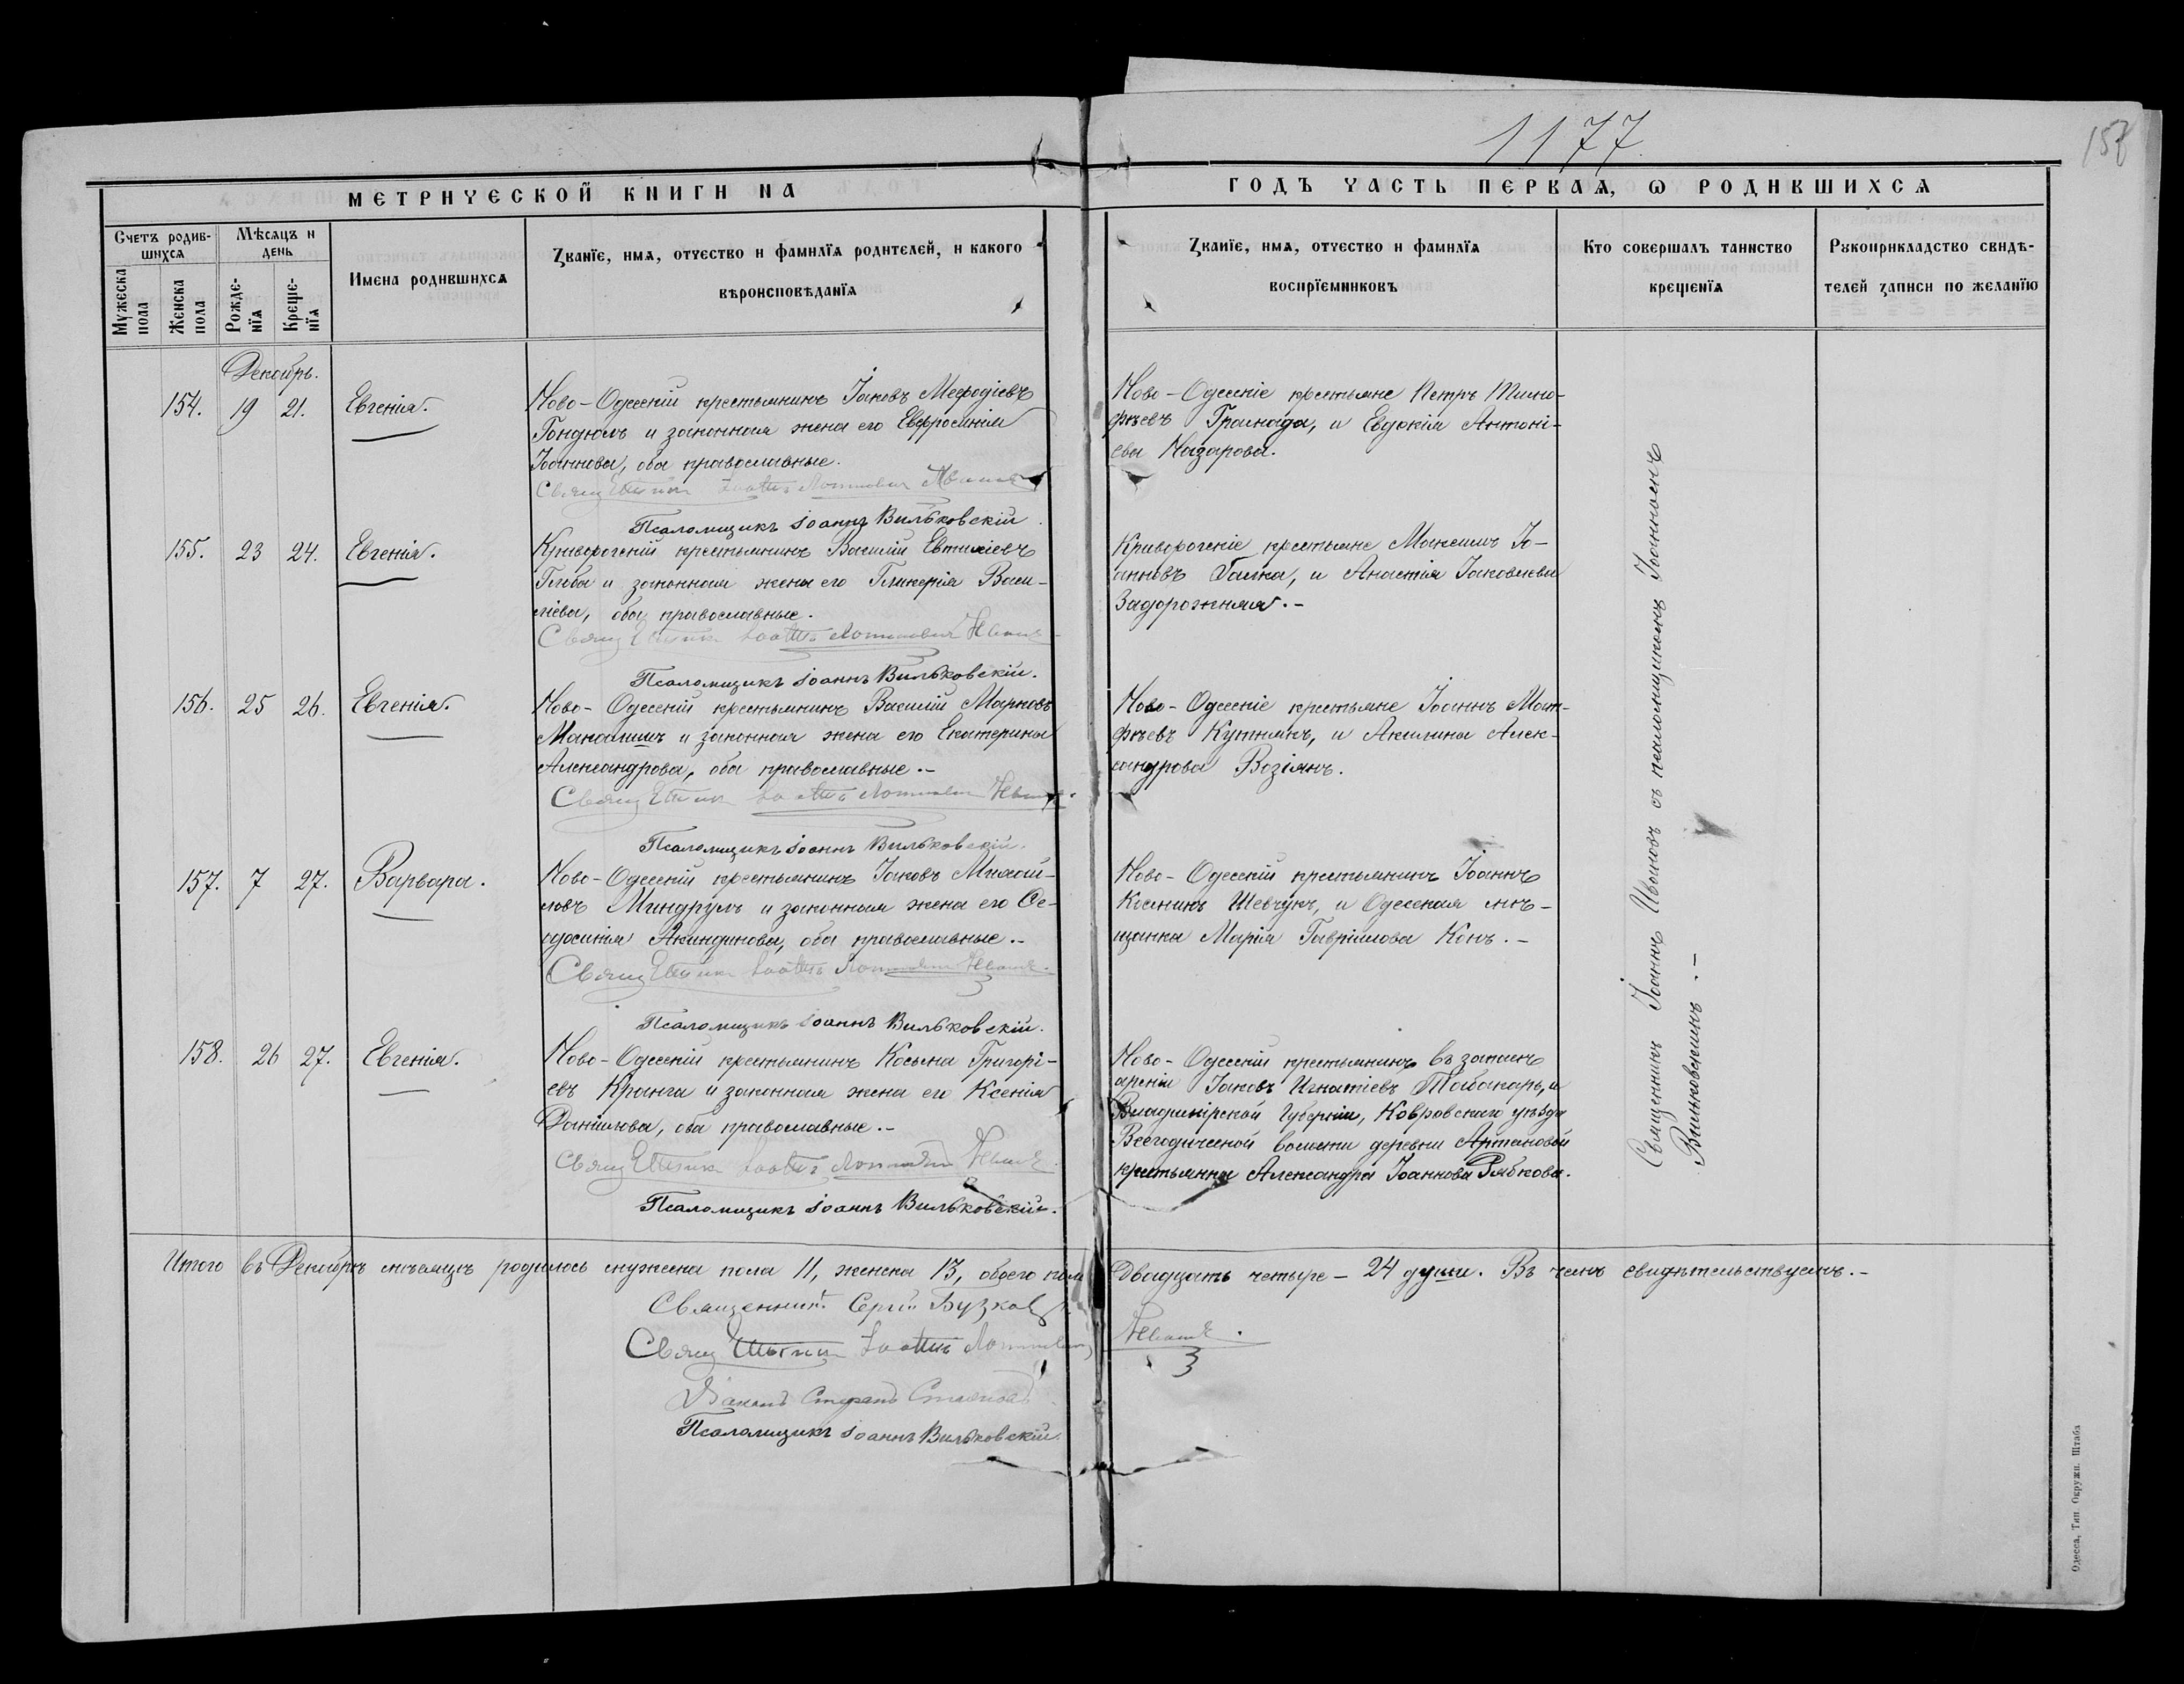 1177
158
МЕТРИЧЕСКОЙ КНИГИ НА
ГОДЪ ЧАСТЬ ПЕРВАЯ, Ѡ РОДИВШИХСЯ
Счетъ родив-
шихся
Мужеска
пола
Женска
пола
Мѣсяцъ и
день
Рожде-
нїя
Креще-
нїя
Имена родившихся
Званїе, имя, отчество и фамилїя родителей, и какого
вѣроисповѣданїя
Званїе, имя, отчество и фамилїя
воспрїемниковъ
Кто совершалъ таинство
крещенїя
Рукоприкладство свидѣ-
телей записи по желанїю
Декабрь.
154. 19 21. Евгенія.
Ново-Одесскій крестьянинъ Іаковъ Мефодіевъ
Гондюлъ и законная жена его Евфросинія
Іоаннова, оба православные.
Священникъ
Псаломщикъ Іоаннъ Вильковскій
Ново-Одесскіе крестьяне Петръ Тимо-
фѣевъ Гранада, и Евдокія Антоні-
ева Назарова.
155. 23 24. Евгенія.
Криворогскій крестьянинъ Василій Евтихіевъ
Глеба и законная жена его Гликерія Васи-
ліева, оба православные.
Священникъ
Псаломщикъ Іоаннъ Вильковскій.
Криворогскіе крестьяне Максимъ Іо-
анновъ Галка, и Анастія Іаковлева
Задорожняя.-
156. 25 26. Евгенія.
Ново-Одесскій крестьянинъ Василій Марковъ
Макалишъ и законная жена его Екатерина
Александрова, оба православные.-
Священникъ
Псаломщикъ Іоаннъ Вильковскій.
Ново-Одесскіе крестьяне Іоаннъ Мат-
фѣевъ Кутнякъ, и Акилина Алек-
сандрова Возіянъ.
157. 7 27. Варвара.
Ново-Одесскій крестьянинъ Іаковъ Михай-
ловъ Миндрулъ и законная жена его Ѳе-
одосія Акиндинова, оба православные.-
Священникъ
Псаломщикъ Іоаннъ Вильковскій.
Ново-Одесскій крестьянинъ Іоаннъ
Косминъ Шевчукъ, и Одесская мѣ-
щанка Марія Гавріилова Конъ.-
158. 26 27. Евгенія.
Ново-Одесскій крестьянинъ Косьма Григорі-
евъ Кранга и законная жена его Ксенія
Даніилова, оба православные.-
Священникъ
Псаломщикъ Іоаннъ Вильковскій.
Ново-Одесскій крестьянинъ въ запасѣ
арміи Іаковъ Игнатіевъ Табакарь, и
Владимірской Губерніи, Ковровскаго уѣзда
Всегодической волости деревни Артемовой
крестьянка Александра Іоаннова Рябкова.
Священникъ Іоаннъ Ивановъ съ псаломщикомъ Іоанномъ
Вильковскимъ.-
Итого въ Декабрѣ мѣсяцѣ родилось мужеска пола 11, женска 13, обоего пола
двадцать четыре-24 души. Въ чемъ свидѣтельствуемъ.-
Священникъ Сергій Бузков
Священникъ
Діаконъ Стефанъ
Псаломщикъ Іоаннъ Вильковскій.
Одесса, Тип. Окружн. Штаба